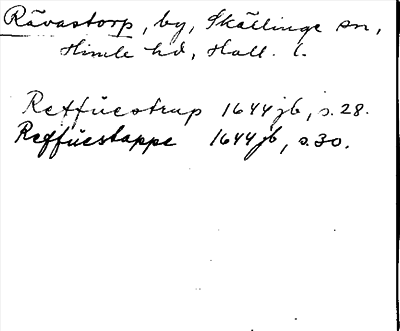 Rävastorp, by, Skällinge sn,
Himle hd, Hall. l.
Reffuestrup 1644 jb, s. 28.
Reffuestappe 1644 jb, s. 30.